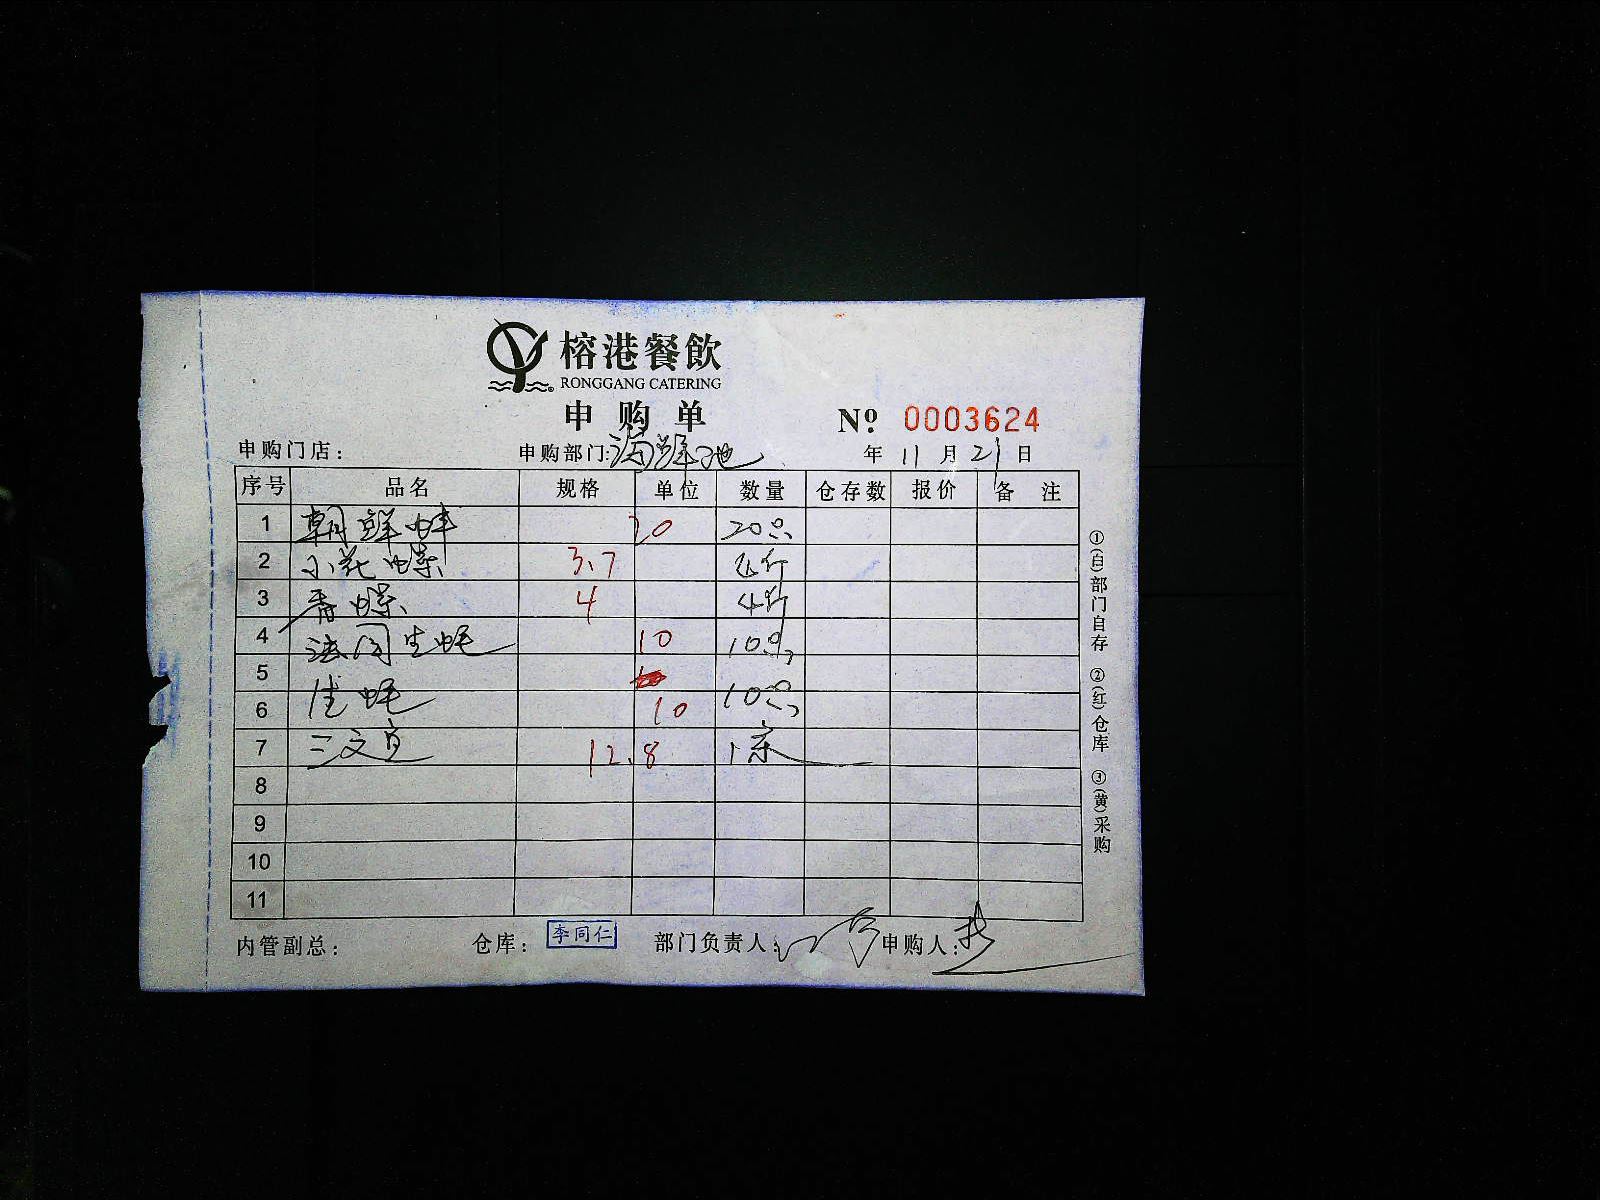 榕港餐飲
RONGGANG CATERING
申购单
№ 0003624
申购门店： 申购部门：海鲜池 年 11 月 21 日
序号 品名 规格 单位 数量 仓存数 报价 备 注
1 朝鲜蚌 20 20只
2 小花螺 3.7 斤
3 青螺 4 4斤
4 法国生蚝 10 10只
5
6 生蚝 10 10只
7 三文鱼 12.8 1条
8
9
10
11
内管副总： 仓库：李同仁 部门负责人： 申购人：
①(白)部门自存 ②(红)仓库 ③(黄)采购